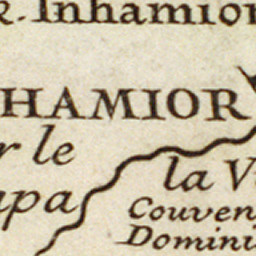 R. Inhamior
HAMIOR
r le
la V
apa
Couven
Domini